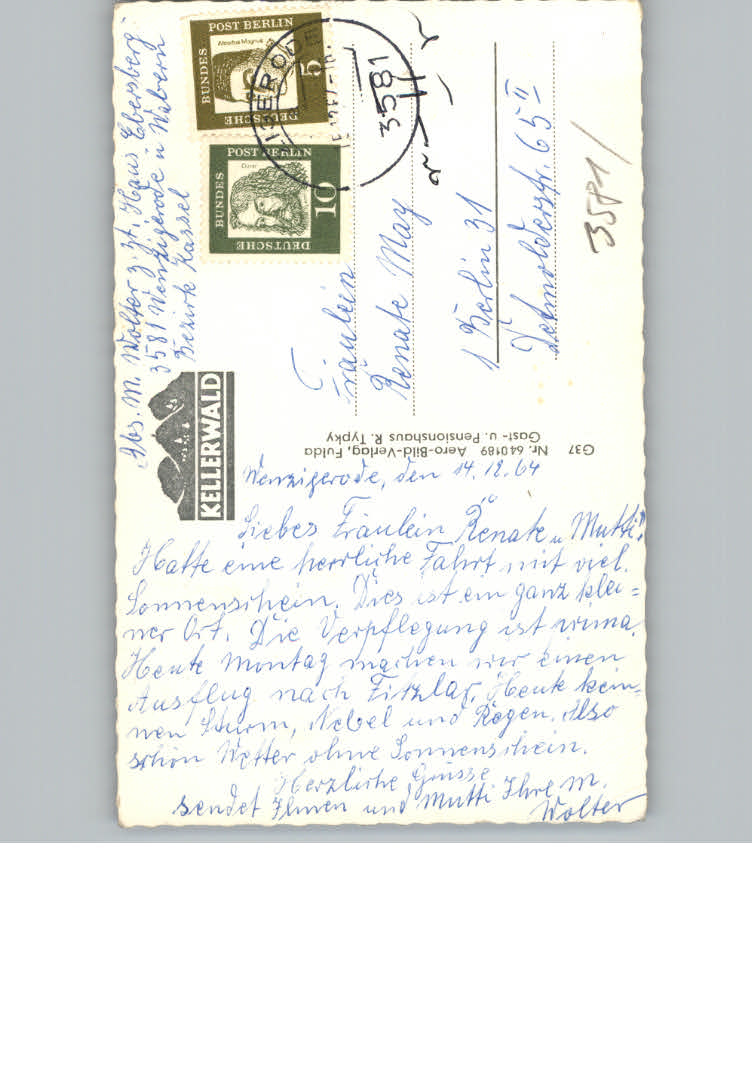 Abs. M. Wolter z. Zt. Haus Ebersberg
3581 Wenzigerode ü Wabern
Bezirk Kassel
DEUTSCHE BUNDES POST BERLIN
Albertus Magnus
5
DEUTSCHE BUNDES POST BERLIN
Dürer
10
3581
3581/
Fräulein
Renate May
1 Berlin 31
Detmolderstr. 65 II
KELLERWALD
G37 Nr. 640189 Aero-Bild-Verlag, Fulda
Gast- u. Pensionshaus R. Typky
Wenzigerode, den 14.12.64
Liebes Fräulein Renate u Mutti!
Hatte eine herrliche Fahrt mit viel
Sonnenschein. Dies ist ein ganz klei=
ner Ort. Die Verpflegung ist prima.
Heute Montag machen wir einen
Ausflug nach Fitzlar. Heute kein-
nen Sturm, Nebel und Regen. Also
schön Wetter ohne Sonnenschein.
Herzliche Grüsse
sendet Ihnen und Mutti Ihre M.
Wolter